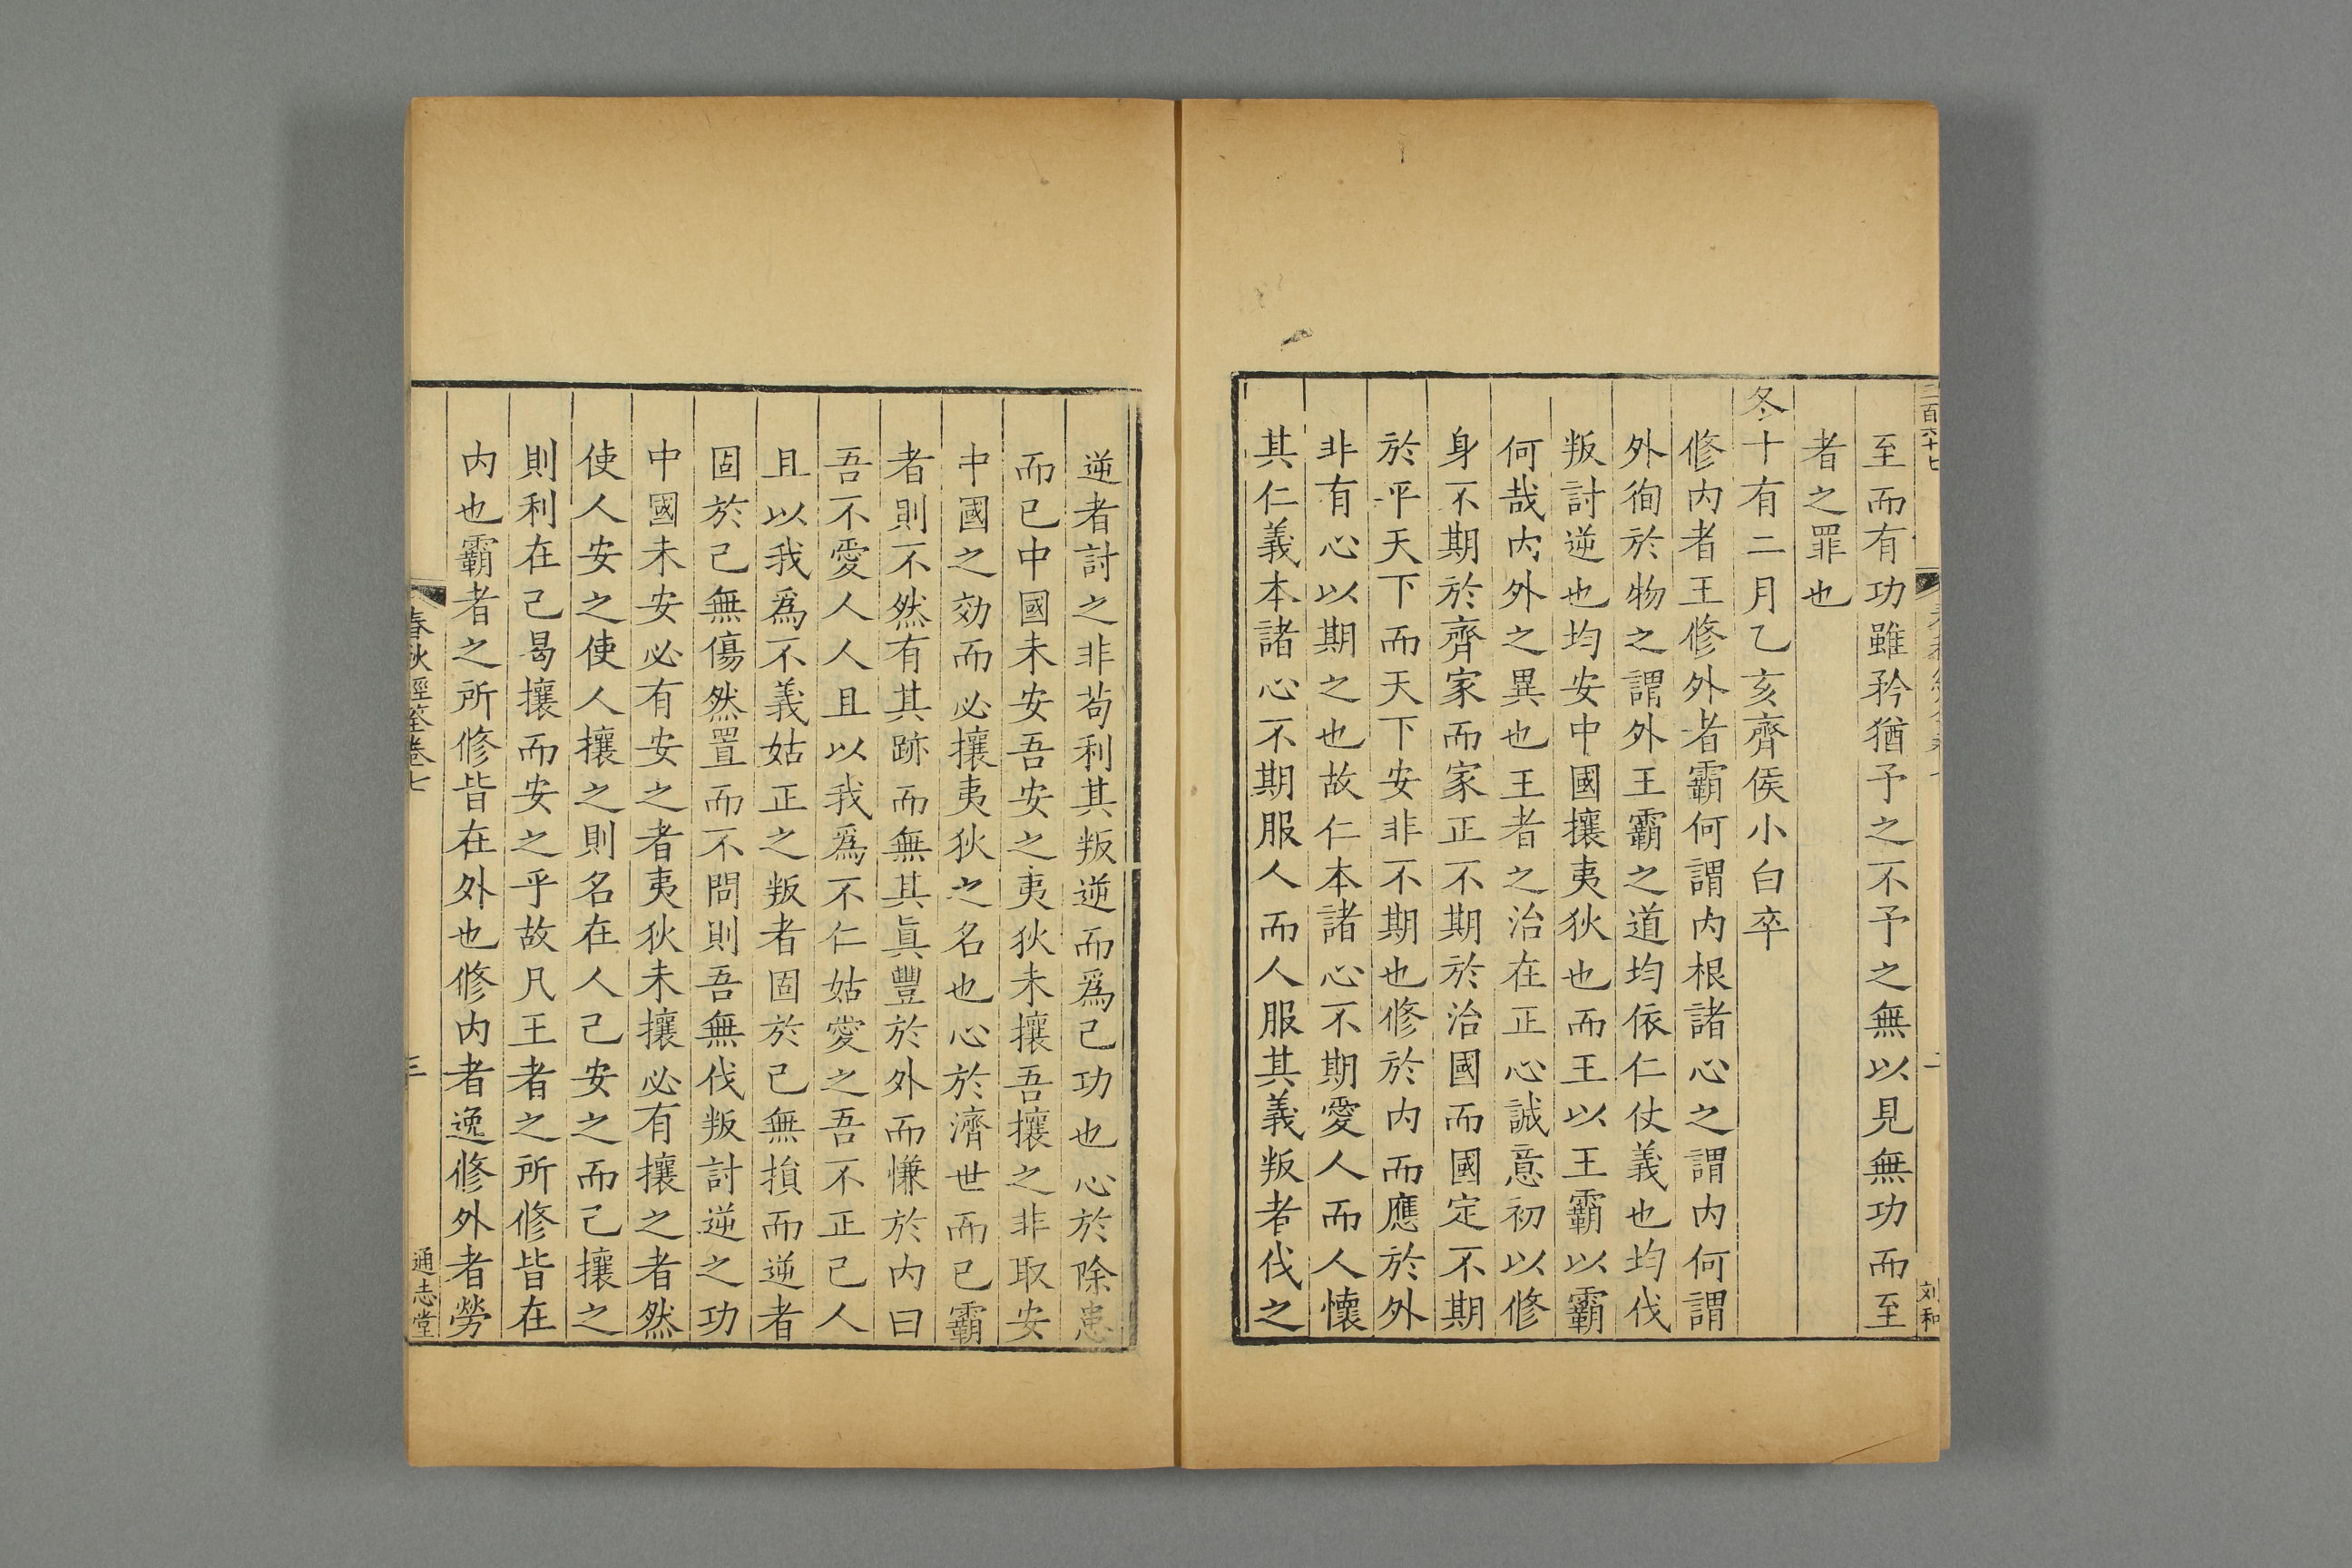 二百六十七
刘和
至而有功雖矜猶予之不予之無以見無功而至
者之罪也
冬十有二月乙亥齊侯小白卒
修内者王修外者霸何謂内根諸心之謂内何謂
外徇於物之謂外王霸之道均依仁仗義也均伐
叛討逆也均安中國攘夷狄也而王以王霸以霸
何哉内外之異也王者之治在正心誠意初以修
身不期於齊家而家正不期於治國而國定不期
於平天下而天下安非不期也修於内而應於外
非有心以期之也故仁本諸心不期愛人而人懷
其仁義本諸心不期服人而人服其義叛者伐之
逆者討之非苟利其叛逆而爲己功也心於除患
而已中國未安吾安之夷狄未攘吾攘之非取安
中國之効而必攘夷狄之名也心於濟世而已霸
者則不然有其跡而無其眞豐於外而慊於内曰
吾不愛人人且以我爲不仁姑愛之吾不正己人
且以我爲不義姑正之叛者固於己無損而逆者
固於己無傷然置而不問則吾無伐叛討逆之功
中國未安必有安之者夷狄未攘必有攘之者然
使人安之使人攘之則名在人己安之而己攘之
則利在己曷攘而安之乎故凡王者之所修皆在
内也霸者之所修皆在外也修内者逸修外者勞
春秋經筌卷七
三
通志堂